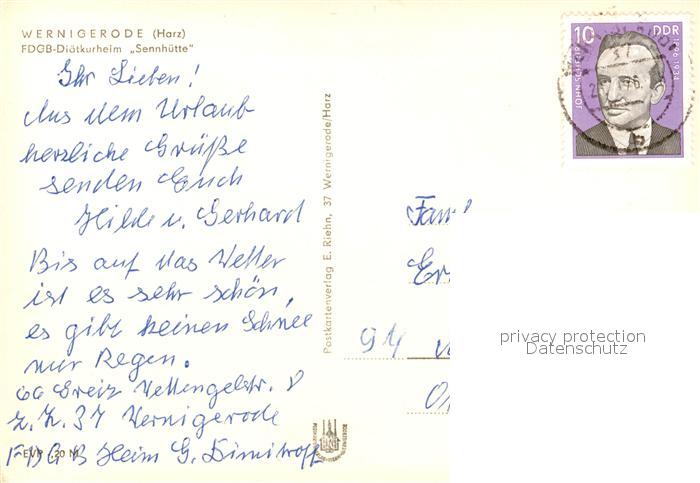 WERNIGERODE (Harz)
FDGB-Diätkurheim „Sennhütte"
Ihr Lieben!
Aus dem Urlaub
herzliche Grüße
senden Euch
Hilde u. Gerhard
Bis auf das Wetter
ist es sehr schön,
es gibt keinen Schnee
nur Regen.
66 Greiz Vettengelstr. 8
z. Z. 37 Wernigerode
FDGB Heim G. Dimitroff
EVP -,20 M
Postkartenverlag E. Riehn, 37 Wernigerode/Harz
10 DDR
JOHN SCHEHR
1896-1934
37
Fam
Er
privacy protection
Datenschutz